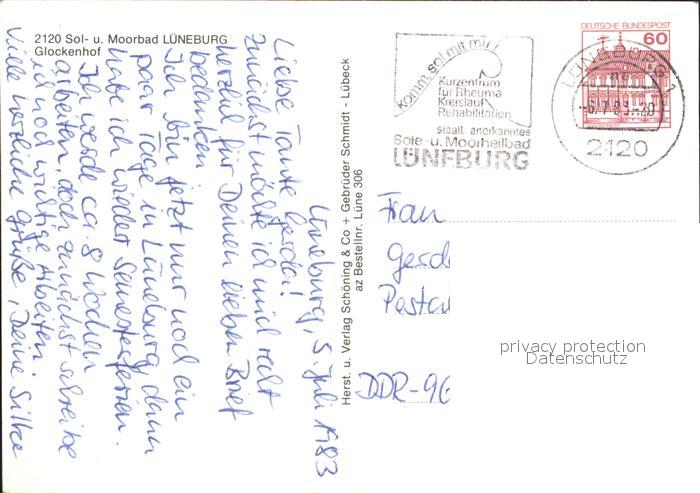 2120 Sol- u. Moorbad LÜNEBURG
Glockenhof
Lüneburg, 5. Juli 1983
Liebe Tante Gerda!
Zunächst möchte ich mich recht
herzlich für Deinen lieben Brief
bedanken.
Ich bin jetzt nur noch ein
paar Tage in Lüneburg, dann
habe ich wieder Semesterferien.
Ich werde ca. 8 Wochen
arbeiten, doch zunächst schreibe
ich noch wichtige Arbeiten.
Viele herzliche Grüße, Deine Silke
Herst. u. Verlag Schöning & Co + Gebrüder Schmidt - Lübeck
az Bestellnr. Lüne 306
komm, sol mit mir
Kurzentrum
für Rheuma
Kreislauf
Rehabilitation
staatl. anerkanntes
Sole-u. Moorheilbad
LÜNEBURG
DEUTSCHE BUNDESPOST
60
LÜNEBURG 1
-6.7.83.-20
2120
Frau
Gerd
Posta
DDR-96
privacy protection
Datenschutz